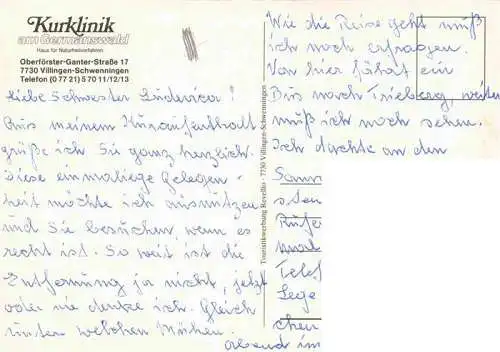 Kurklinik
am Germanswald
Haus für Naturheilverfahren
Oberförster-Ganter-Straße 17
7730 Villingen-Schwenningen
Telefon (0 77 21) 5 70 11/12/13
Liebe Schwester Ludovica!
Aus meinem Kuraufenthalt
grüße ich Sie ganz herzlich.
Diese einmalige Gelegen-
heit möchte ich ausnützen
und Sie besuchen, wenn es
recht ist. So weit ist die
Entfernung ja nicht, jetzt
oder nie denke ich. Gleich
unter welchen Mühen.
Touristikwerbung Revellio · 7730 Villingen-Schwenningen
Wie die Reise geht muß
ich noch erfragen.
Von hier fährt ein
Bus nach Triberg, weiter
muß ich noch sehen.
Ich dachte an den
Sams
Rufe
mal
Telef
Lege
chen
abend im